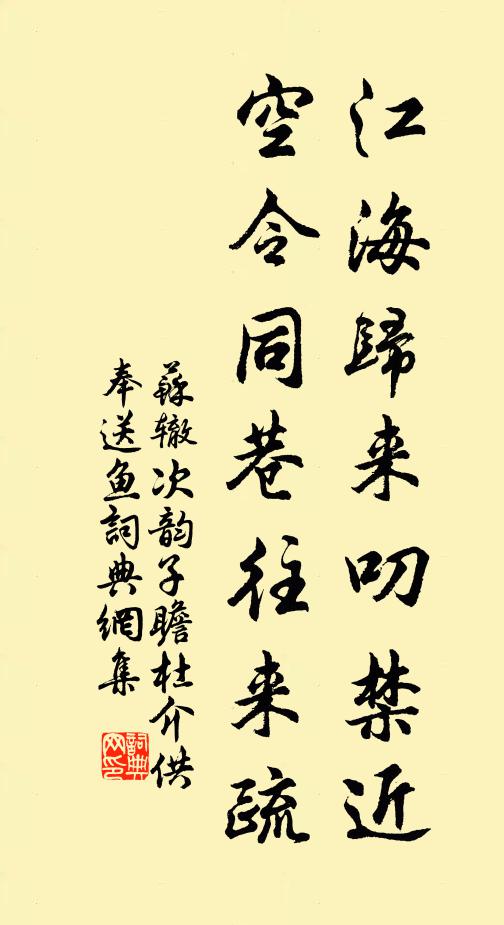 江海歸来叨禁近
空令同巷往来疏
蘇辙次韵子瞻杜介供
奉送鱼詞典網集
詞典网印